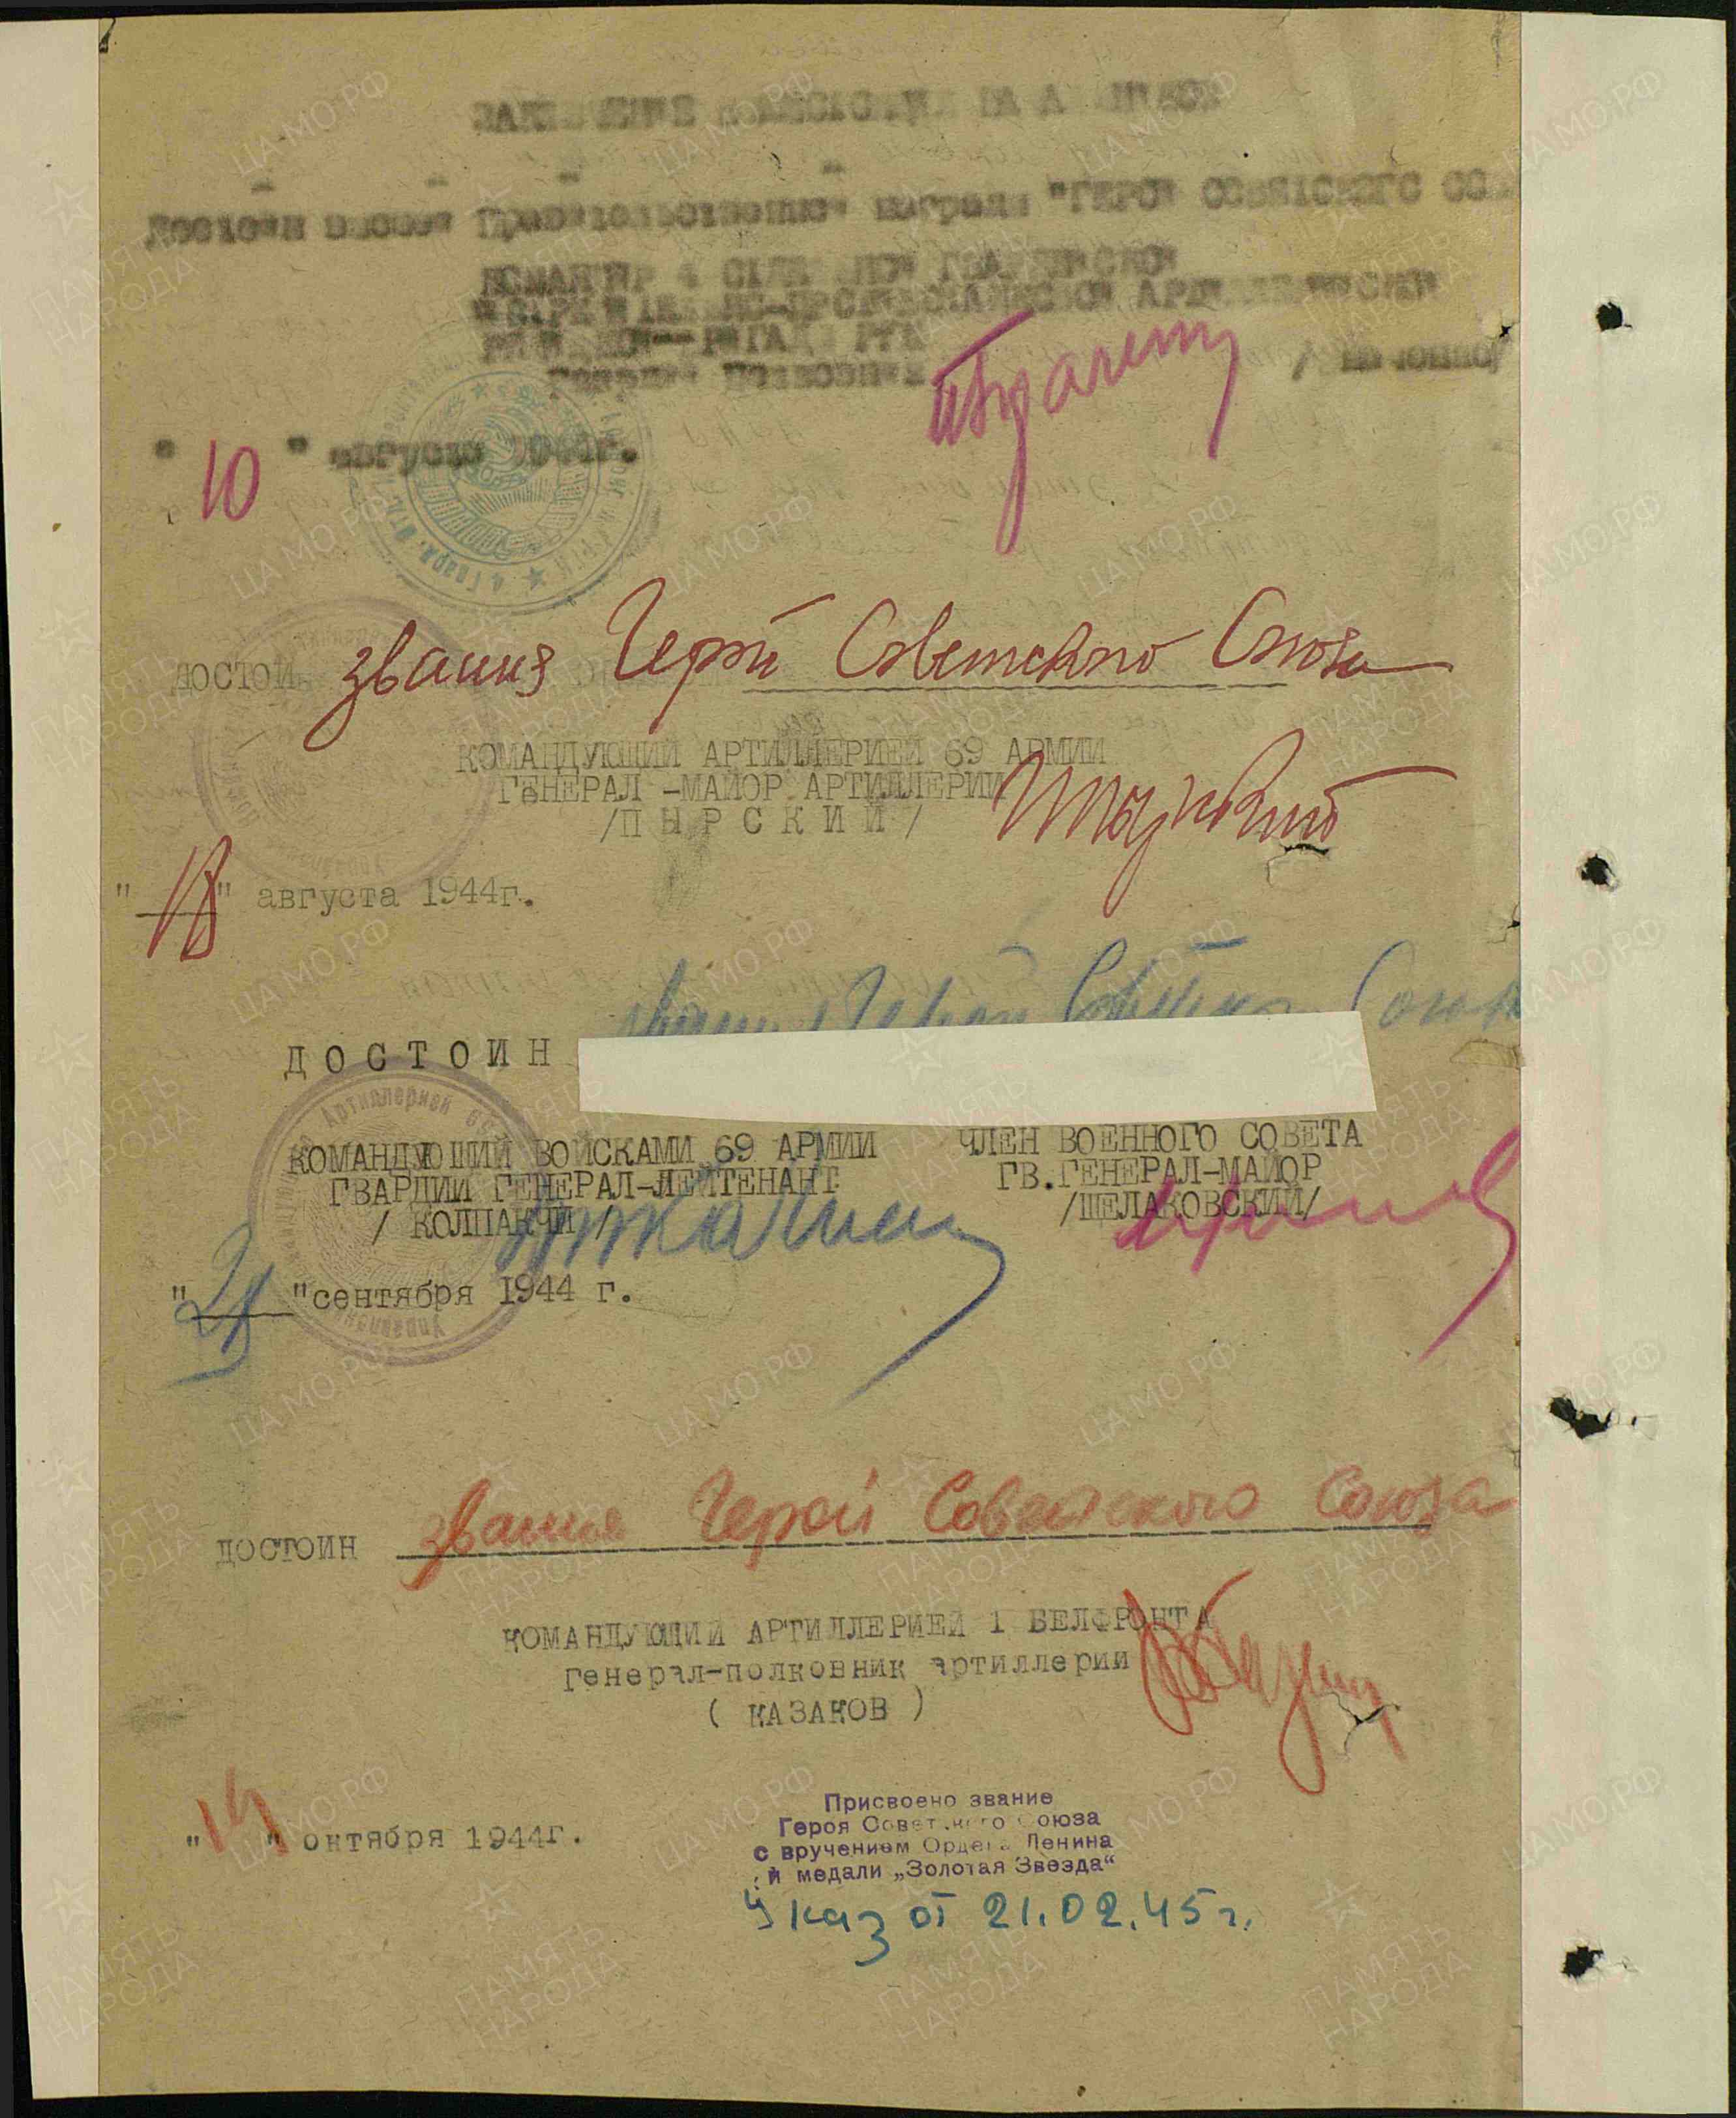 Достоин высшей Правительственной награды "ГЕРОЙ СОВЕТСКОГО СО
КОМАНДИР 4 ОТДЕЛЬНОЙ ГВАРДЕЙСКОЙ
ИСТРЕБИТЕЛЬНО-ПРОТИВОТАНКОВОЙ АРТИЛЛЕРИЙСКОЙ
гвардии Полковник
"10" августа 1944г.
ДОСТОИН звания Герой Советского Союза
КОМАНДУЮЩИЙ АРТИЛЛЕРИЕЙ 69 АРМИИ
ГЕНЕРАЛ-МАЙОР АРТИЛЛЕРИИ
/ПЫРСКИЙ/
"18" августа 1944г.
звания Герой Советского Союза
ДОСТОИН
КОМАНДУЮЩИЙ ВОЙСКАМИ 69 АРМИИ
ГВАРДИИ ГЕНЕРАЛ-ЛЕЙТЕНАНТ
/ КОЛПАКЧИ /
ЧЛЕН ВОЕННОГО СОВЕТА
ГВ.ГЕНЕРАЛ-МАЙОР
/ЩЕЛАКОВСКИЙ/
" "сентября 1944 г.
ДОСТОИН звания Герой Советского Союза
КОМАНДУЮЩИЙ АРТИЛЛЕРИЕЙ 1 БЕЛФРОНТА
генерал-полковник артиллерии
( КАЗАКОВ )
"14" октября 1944г.
Присвоено звание
Героя Советского Союза
с вручением Ордена Ленина
и медали „Золотая Звезда“
Указ от 21.02.45 г.